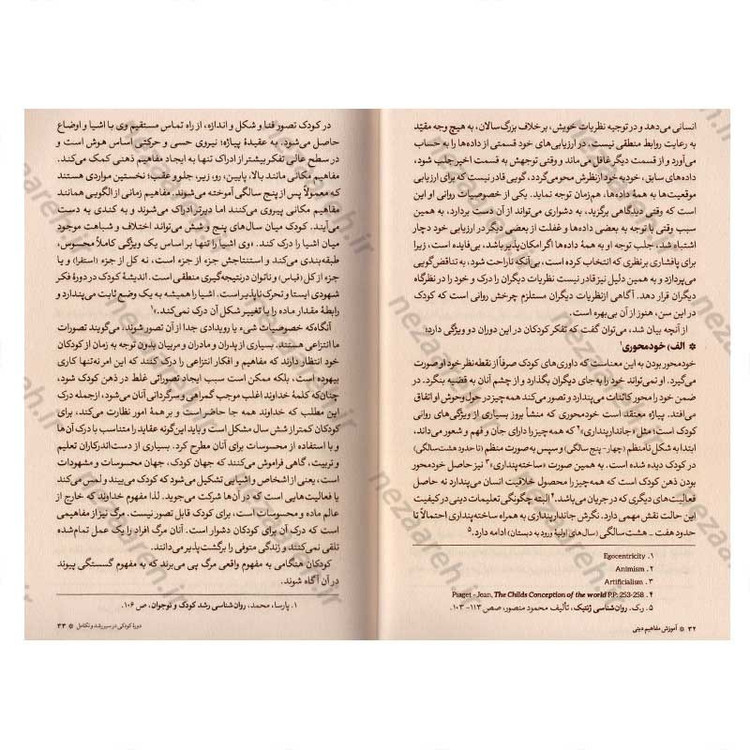 انسانی می‌دهد و در توجیه نظریات خویش، برخلاف بزرگ‌سالان، به هیچ وجه مقیّد
به رعایت روابط منطقی نیست. در ارزیابی‌های خود قسمتی از داده‌ها را به حساب
می‌آورد و از قسمت دیگر غافل می‌ماند و وقتی توجهش به قسمت اخیر جلب شود،
داده‌های سابق، خودبه‌خود از نظرش محو می‌گردد، گویی قادر نیست که برای ارزیابی
موقعیت‌ها به همهٔ داده‌ها، هم‌زمان توجه نماید. یکی از خصوصیات روانی او این
است که وقتی دیدگاهی برگزید، به دشواری می‌تواند از آن دست بردارد، به همین
سبب وقتی با توجه به بعضی داده‌ها و غفلت از بعضی دیگر در ارزیابی خود دچار
اشتباه شد، جلب توجه او به همهٔ داده‌ها اگر امکان‌پذیر باشد، بی‌فایده است، زیرا
برای پافشاری بر نظری که انتخاب کرده است، بی‌آنکه ناراحت شود، به تناقض‌گویی
می‌پردازد و به همین دلیل نیز قادر نیست نظریات دیگران را درک و خود را در نظرگاه
دیگران قرار دهد. آگاهی از نظریات دیگران مستلزم چرخش روانی است که کودک
در این سن، هنوز از آن بی‌بهره است.
از آنچه بیان شد، می‌توان گفت که تفکر کودکان در این دوران دو ویژگی دارد:
* الف) خودمحوری۱
خودمحور بودن به این معناست که داوری‌های کودک صرفاً از نقطه‌نظر خود او صورت
می‌گیرد. او نمی‌تواند خود را به جای دیگران بگذارد و از چشم آنان به قضیه بنگرد. در
ضمن خود را محور کائنات می‌پندارد و تصور می‌کند همه‌چیز در حول وحوش او اتفاق
می‌افتد. پیاژه معتقد است خودمحوری که منشأ بروز بسیاری از ویژگی‌های روانی
کودک است؛ مثل «جاندارپنداری»۲ که همه‌چیز را دارای جان و فهم و شعور می‌داند،
ابتدا به شکل نامنظم (چهار-پنج سالگی) و سپس به صورت منظم (تا حدود هشت‌سالگی)
در کودک دیده شده است. به همین صورت «ساخته‌پنداری»۳ نیز حاصل خودمحور
بودن ذهن کودک است که همه‌چیز را محصول خلاقیت انسان می‌پندارد نه حاصل
فعالیت‌های دیگری که در جریان می‌باشد.۴ البته چگونگی تعلیمات دینی در کیفیت
این حالت نقش مهمی دارد. نگرش جاندارپنداری به همراه ساخته‌پنداری احتمالاً تا
حدود هفت ـ هشت‌سالگی (سال‌های اولیهٔ ورود به دبستان) ادامه دارد.۵
۱. Egocentricity
۲. Animism
۳. Artificialism
۴. Piaget - Jean, The Childs Conception of the world P.P: 253-258
۵. ر.ک. روان‌شناسی ژنتیک، تألیف محمود منصور، صص ۱۱۳-۱۰۳.
۳۲ * آموزش مفاهیم دینی
در کودک تصور فضا و شکل و اندازه، از راه تماس مستقیم وی با اشیا و اوضاع
حاصل می‌شود. به عقیدهٔ پیاژه؛ نیروی حسی و حرکتی اساس هوش است و
در سطح عالی تفکر بیشتر از ادراک تنها به ایجاد مفاهیم ذهنی کمک می‌کند.
مفاهیم مکانی مانند بالا، پایین، رو، زیر، جلو و عقب؛ نخستین مواردی هستند
که معمولاً پس از پنج سالگی آموخته می‌شوند. مفاهیم زمانی از الگویی همانند
مفاهیم مکانی پیروی می‌کنند اما دیرتر ادراک می‌شوند و به کندی به دست
می‌آیند. کودک میان سال‌های پنج و شش می‌تواند اختلاف و شباهت موجود
میان اشیا را درک کند. «وی اشیا را تنها بر اساس یک ویژگی کاملاً محسوس،
طبقه‌بندی می‌کند و استنتاجش جزء از جزء است، نه کل از جزء (استقرا) و یا
جزء از کل (قیاس) و ناتوان در نتیجه‌گیری منطقی است. اندیشهٔ کودک در دورهٔ فکر
شهودی ایستا و تحرک‌ناپذیر است. اشیا را همیشه به یک وضع ثابت می‌پندارد و
رابطهٔ مقدار ماده را با تغییر شکل آن درک نمی‌کند.»۱
آنگاه که خصوصیات شیء یا رویدادی جدا از آن تصور شوند، می‌گویند تصورات
ما انتزاعی هستند. بسیاری از پدران و مادران و مربیان بدون توجه به زمان از کودکان
خود انتظار دارند که مفاهیم و افکار انتزاعی را درک کنند که این امر نه‌تنها کاری
بیهوده است، بلکه ممکن است سبب ایجاد تصوراتی غلط در ذهن کودک شود،
چنان‌که کلمهٔ خداوند اغلب موجب گمراهی و سرگردانی آنان می‌شود، ازجمله درک
این مطلب که خداوند همه جا حاضر است و بر همهٔ امور نظارت می‌کند، برای
کودکان کمتر از شش سال مشکل است و باید این‌گونه عقاید را متناسب با درک آن‌ها
و با استفاده از محسوسات برای آنان مطرح کرد. بسیاری از دست‌اندرکاران تعلیم
و تربیت، گاهی فراموش می‌کنند که جهان کودک، جهان محسوسات و مشهودات
است، یعنی از اشخاص و اشیایی تشکیل می‌شود که کودک می‌بیند و لمس می‌کند
یا فعالیت‌هایی است که در آن‌ها شرکت می‌جوید. لذا مفهوم خداوند که خارج از
عالم ماده و محسوسات است، برای کودک قابل تصور نیست. مرگ نیز از مفاهیمی
است که درک آن برای کودکان دشوار است. آنان مرگ افراد را یک عمل تمام‌شده
تلقی نمی‌کنند و زندگی متوفی را برگشت‌پذیر می‌دانند.
کودکان هنگامی به مفهوم واقعی مرگ پی می‌برند که به مفهوم گسستگی پیوند
در آن آگاه شوند.
۱. پارسا، محمد، روان‌شناسی رشد کودک و نوجوان، ص ۱۰۶.
دورهٔ کودکی در سیر رشد و تکامل * ۳۳
nezaareh.ir